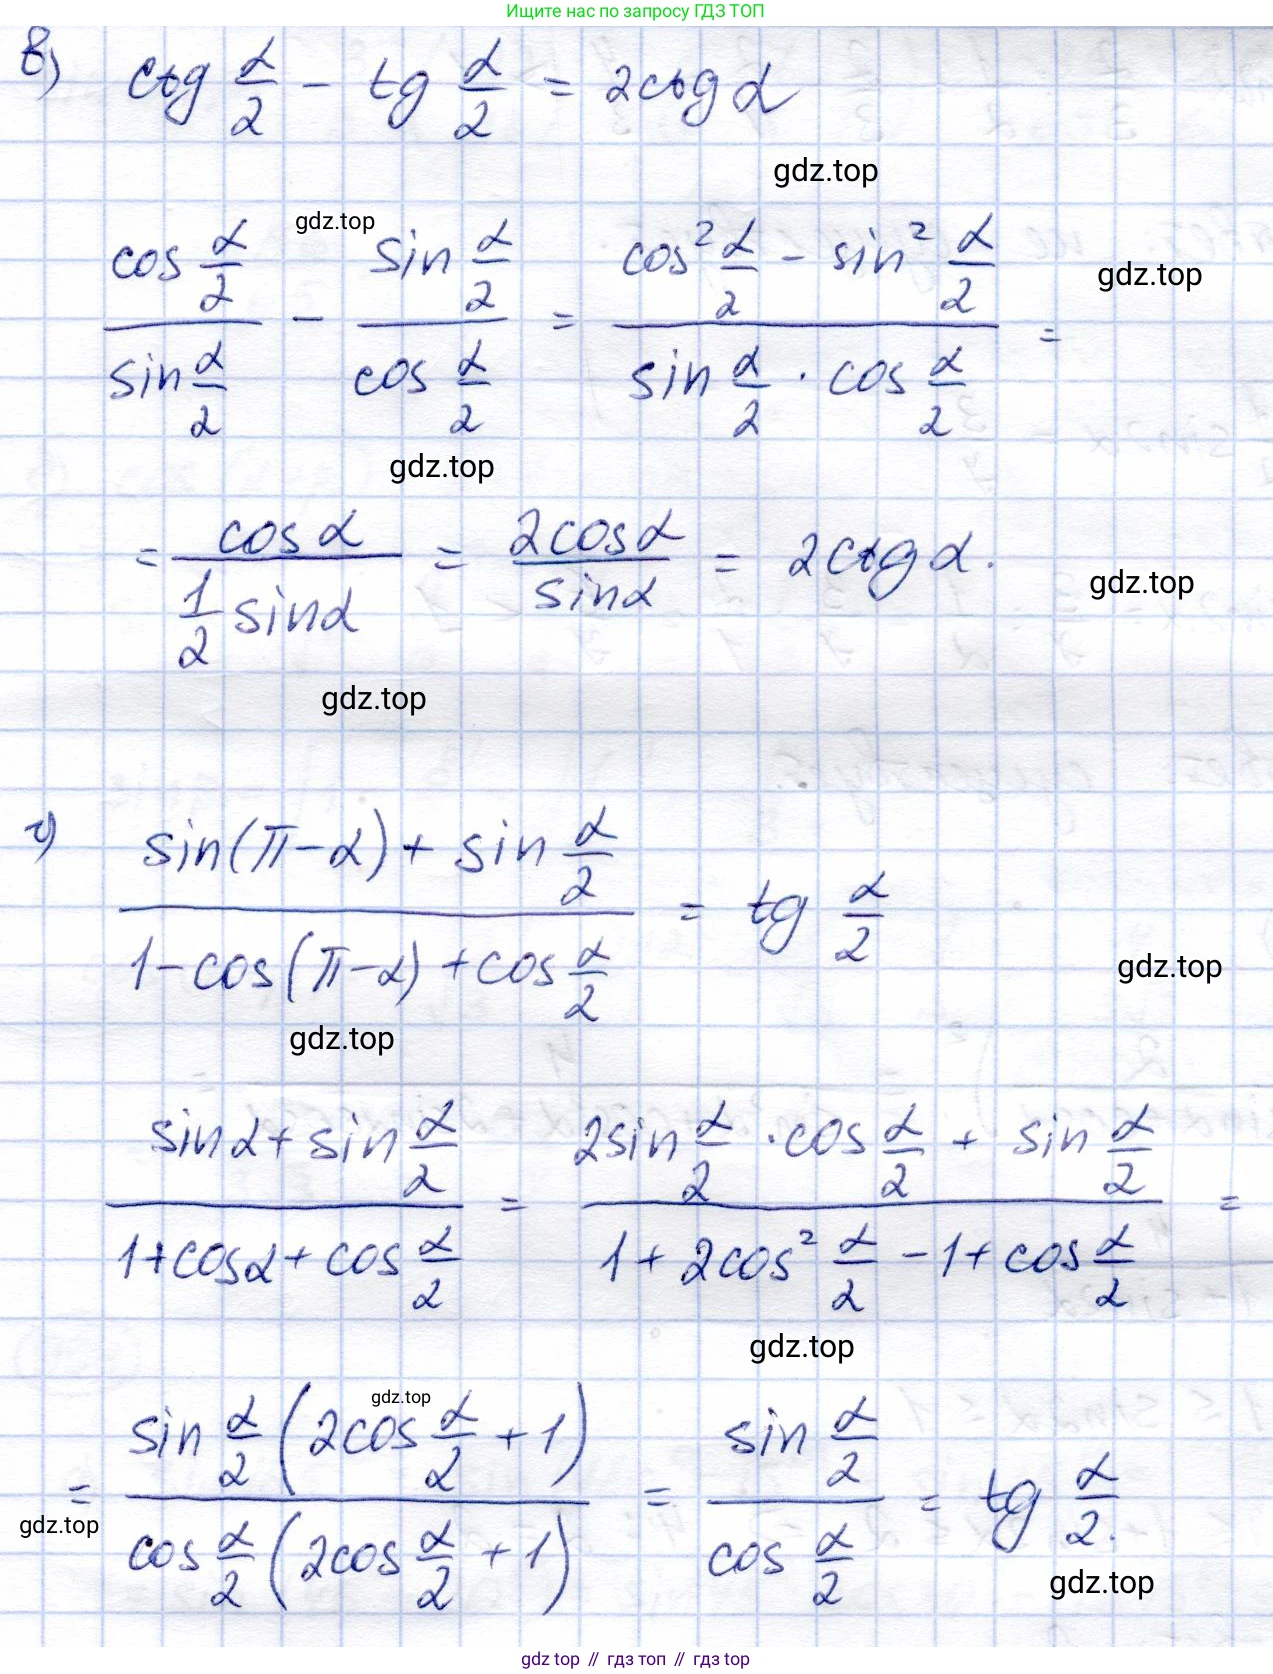 Ищите нас по запросу ГДЗ ТОП
в) ctg α/2 - tg α/2 = 2ctg α
gdz.top
gdz.top
cos α/2 / sin α/2 - sin α/2 / cos α/2 = (cos² α/2 - sin² α/2) / (sin α/2 · cos α/2) =
gdz.top
gdz.top
= cos α / (1/2 sin α) = 2cos α / sin α = 2ctg α.
gdz.top
gdz.top
г) (sin(π-α) + sin α/2) / (1 - cos(π-α) + cos α/2) = tg α/2
gdz.top
gdz.top
(sin α + sin α/2) / (1 + cos α + cos α/2) = (2sin α/2 · cos α/2 + sin α/2) / (1 + 2cos² α/2 - 1 + cos α/2) =
gdz.top
gdz.top
= sin α/2 (2cos α/2 + 1) / cos α/2 (2cos α/2 + 1) = sin α/2 / cos α/2 = tg α/2.
gdz.top
gdz.top
gdz top // гдз топ // gdz top